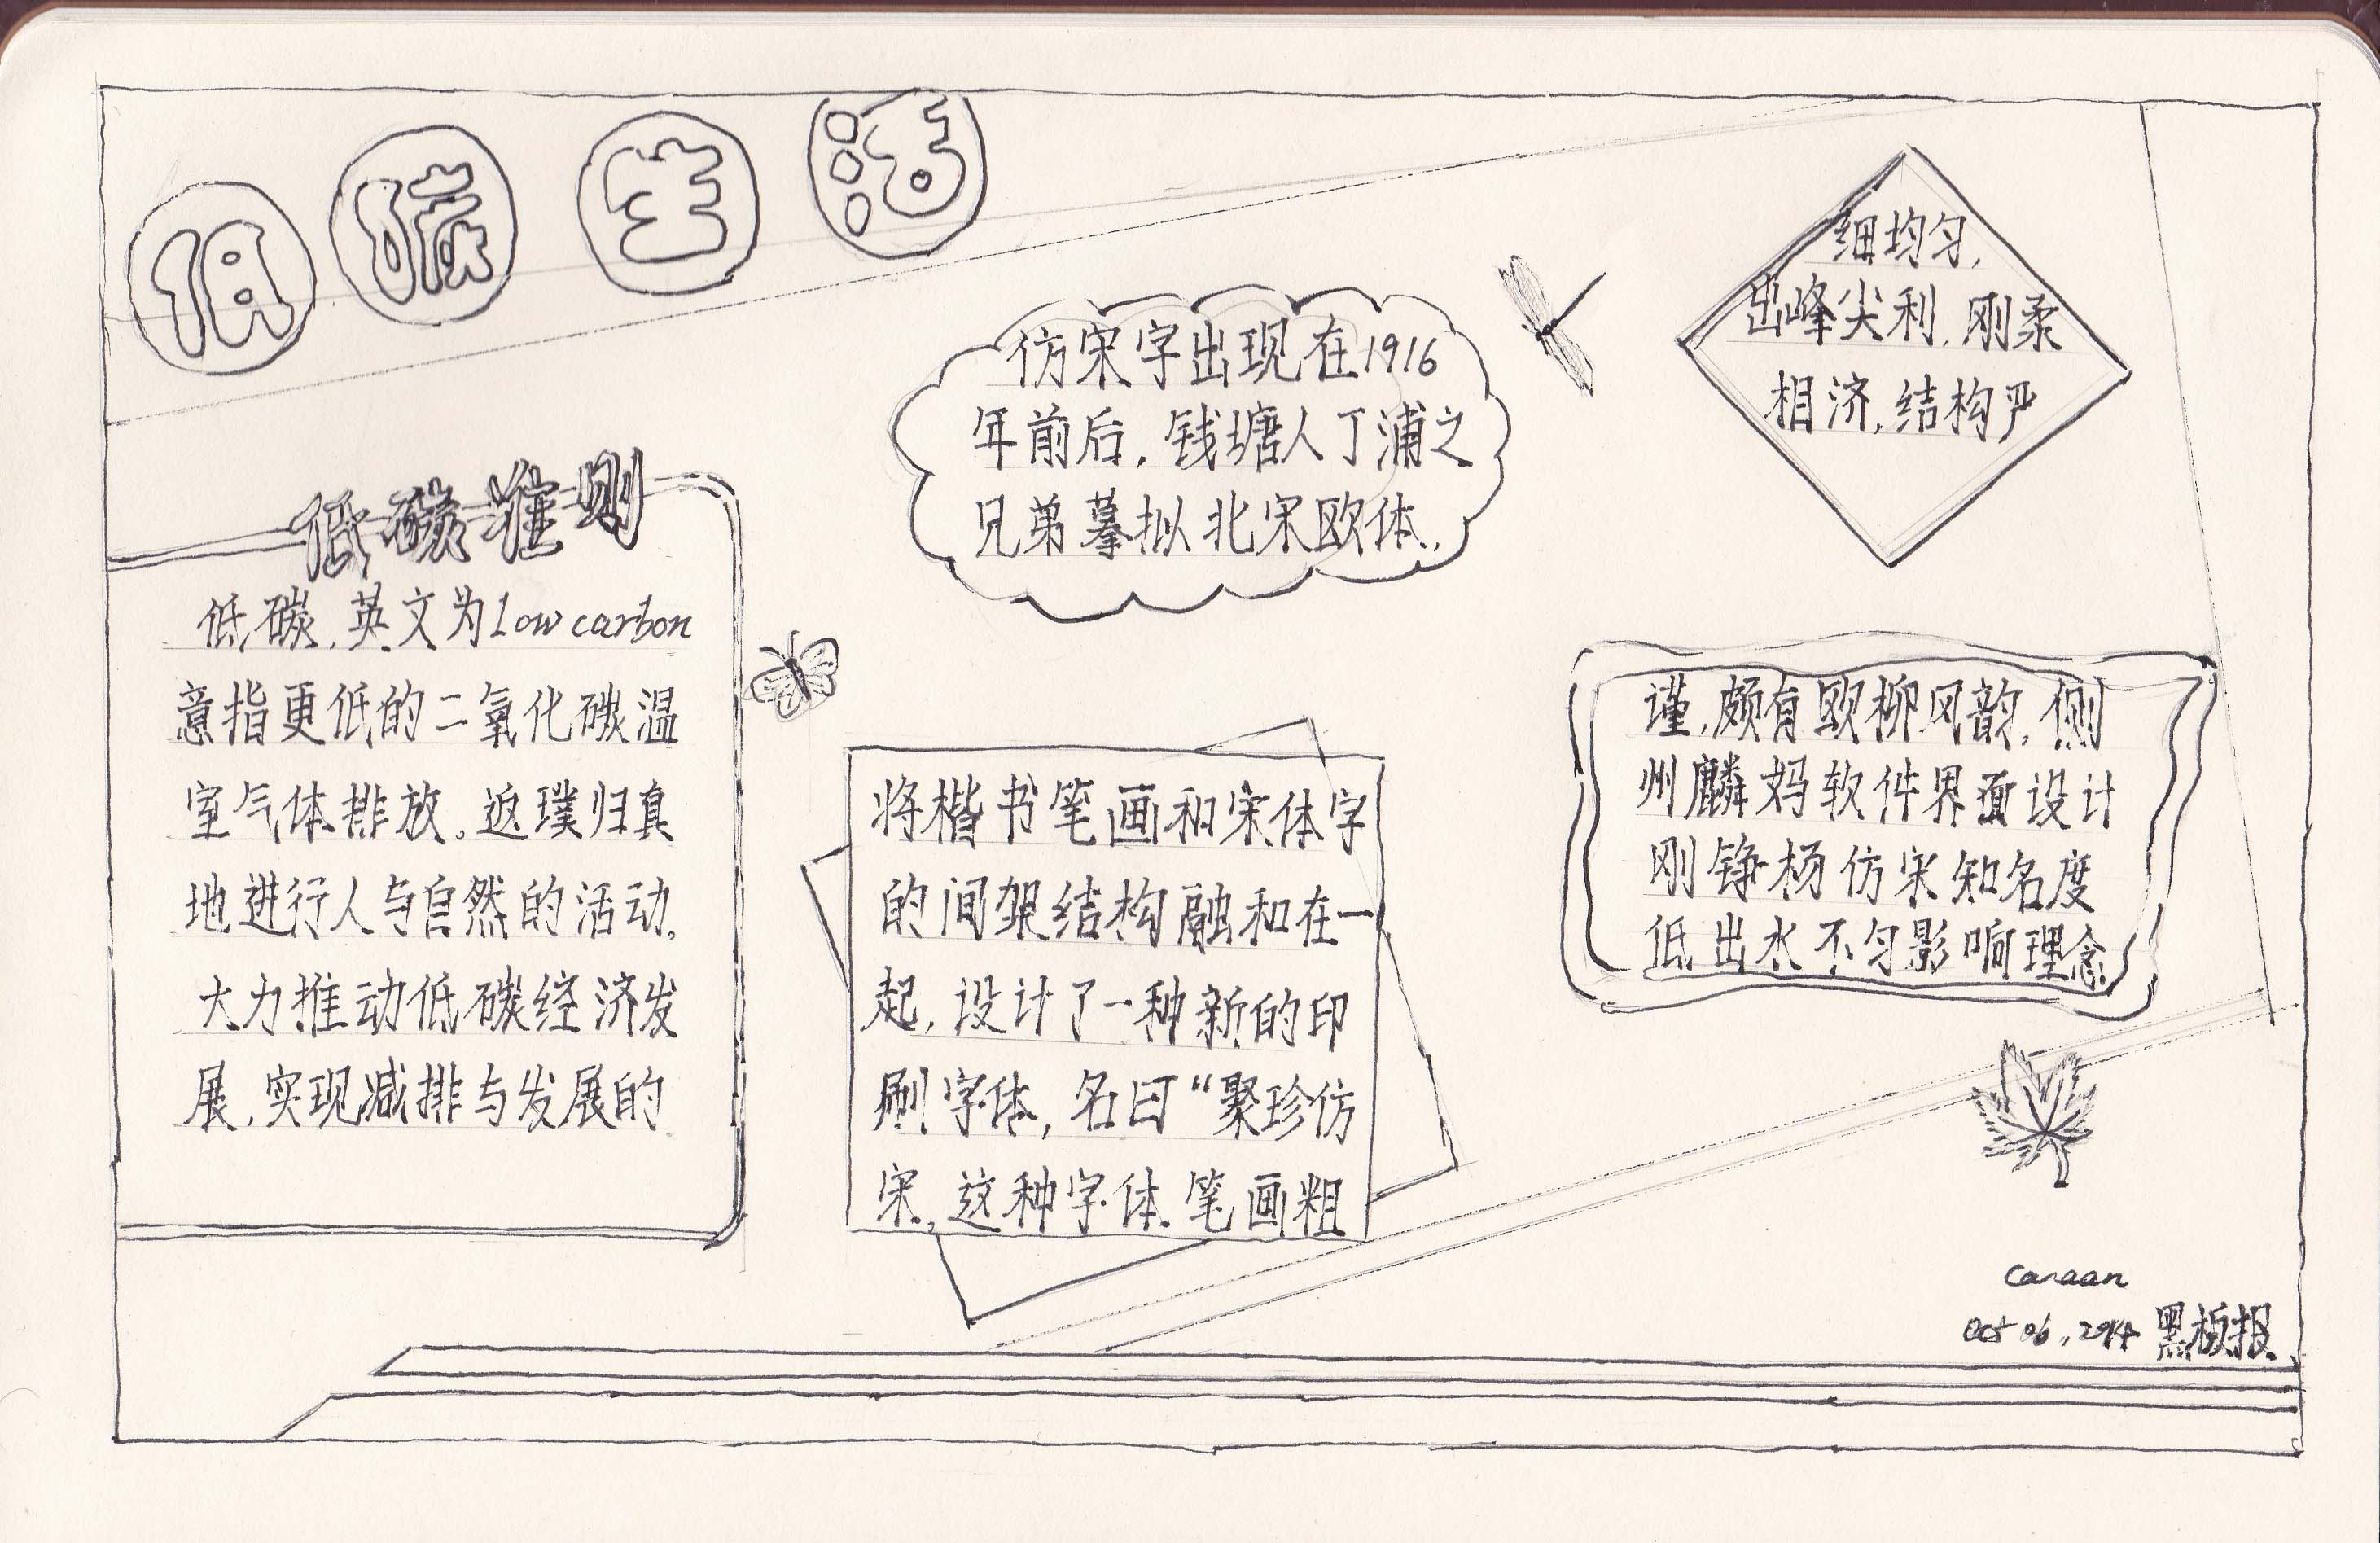 低碳生活
低碳准则
低碳,英文为low carbon
意指更低的二氧化碳温
室气体排放。返璞归真
地进行人与自然的活动。
大力推动低碳经济发
展,实现减排与发展的
仿宋字出现在1916
年前后,钱塘人丁浦之
兄弟摹拟北宋欧体,
将楷书笔画和宋体字
的间架结构融和在一
起,设计了一种新的印
刷字体,名曰“聚珍仿
宋,这种字体笔画粗
细均匀,
出峰尖利,刚柔
相济,结构严
谨,颇有欧柳风韵,侧
州麟妈软件界面设计
刚铮杨仿宋知名度
低出水不匀影响理念
Canaan
Oct 06, 2014 黑板报